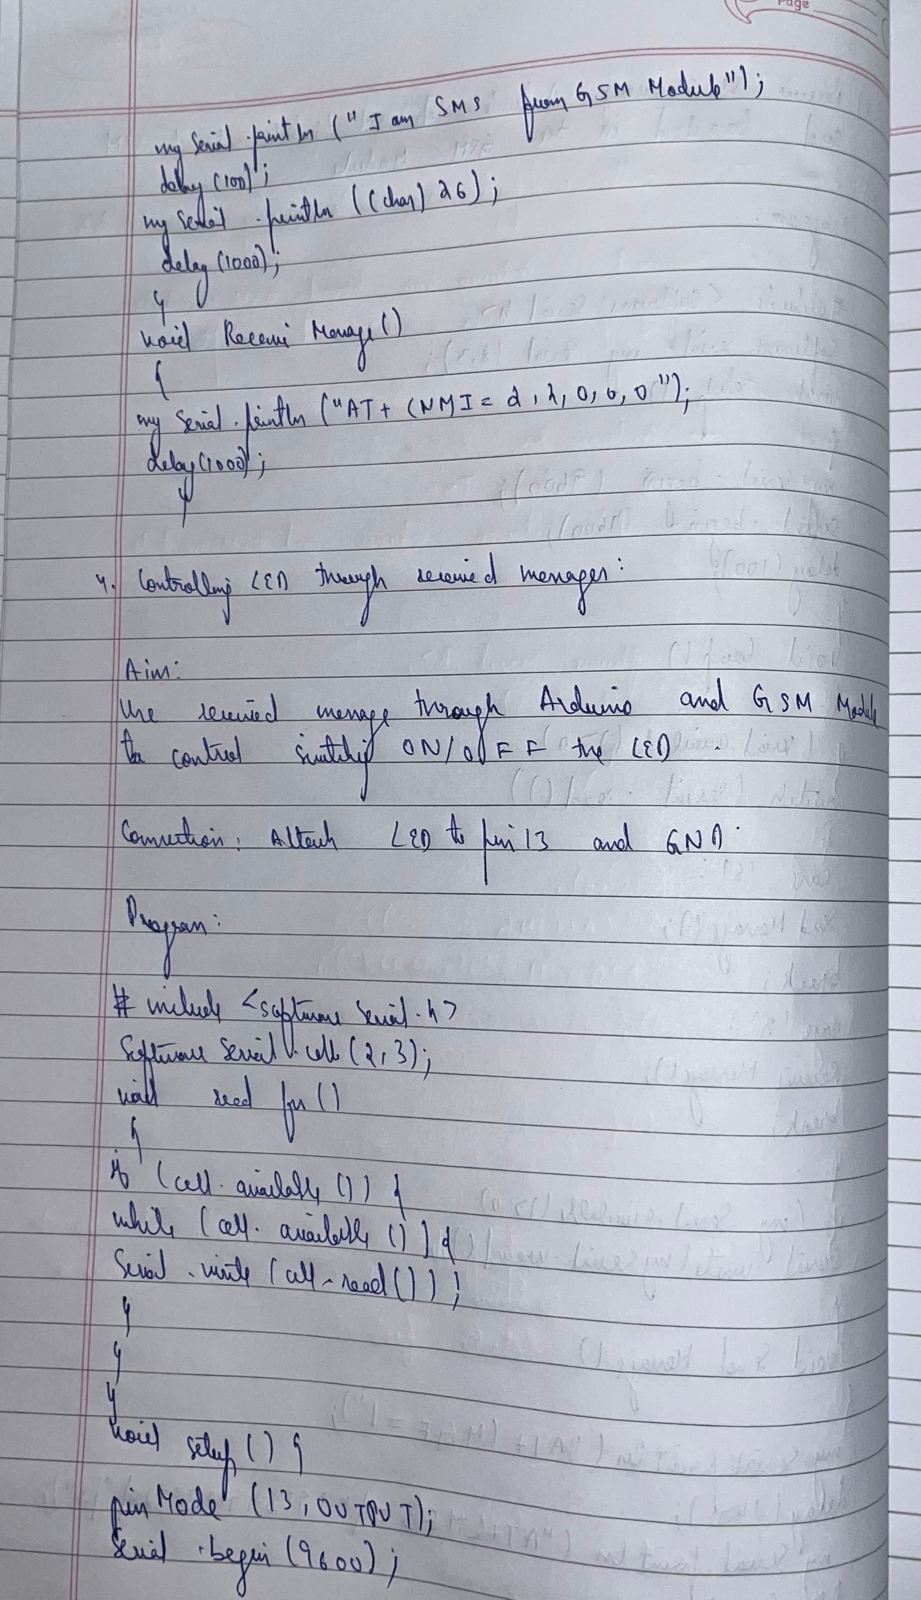 Page
my Serial.println ("I am SMS from GSM Module");
delay (100);
my Serial.println ((char) 26);
delay (1000);
}
void Receive Message()
{
my Serial.println ("AT+ CNMI = 2,2,0,0,0");
delay (1000);
}
4. Controlling LED through received messages:
Aim:
Use received message through Arduino and GSM Module
to control switching ON/OFF the LED.
Connection: Attach LED to pin 13 and GND.
Program:
# include <software Serial.h>
Software Serial cell (2,3);
void read fn ()
{
if (cell.available ()) {
while (cell.available ()) {
Serial.write (cell.read());
}
}
}
void setup () {
pin Mode (13, OUTPUT);
Serial.begin (9600);